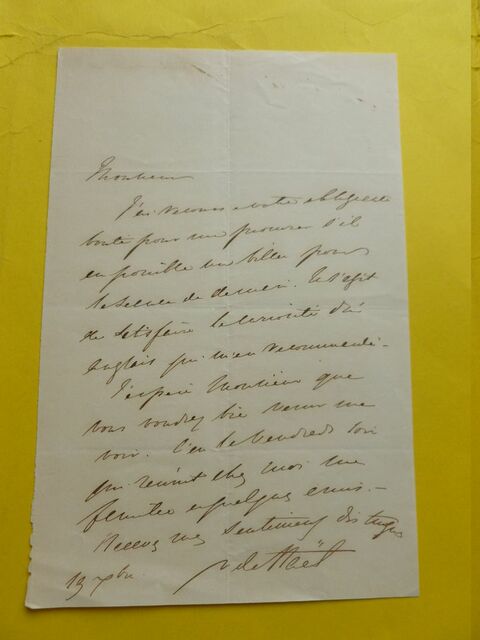 Monsieur
J'ai recours à votre obligeante
bonté pour me procurer s'il
est possible un billet pour
la séance de demain. Il s'agit
de satisfaire la curiosité d'un
anglais qui m'est recommandé.
J'espère Monsieur que
vous voudrez bien venir me
voir. C'est le Vendredi soir
qui réunit chez moi ma
famille et quelques amis.
Recevez mes sentiments distingués
19 xbre